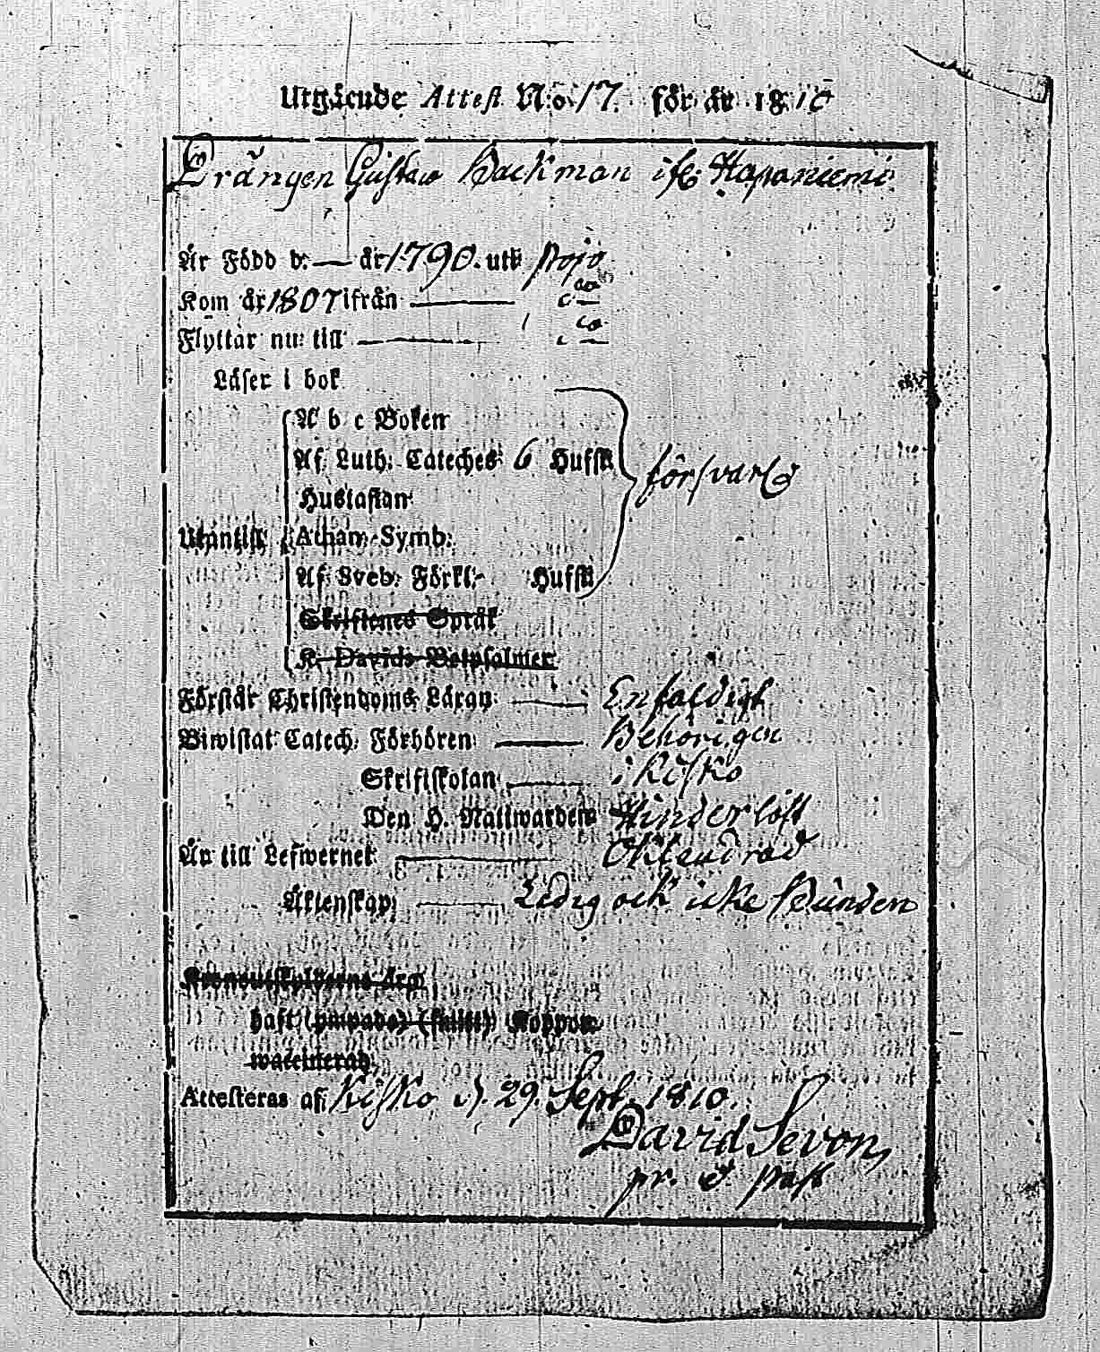 Utgående Attest N:o 17. för år 1810
Drängen Gustav Backman ifr. Haponiemi
Är Född d. — år 1790. uti Pojo
Kom år 1807 ifrån
Flyttar nu till
Läser i bok
A b c Boken
Af Luth. Cateches 6 Hufst
försvarl.
Hustaflan
Utantill Athan. Symb.
Af Sveb. Förkl. Hufst
Skriftenes Språk
K. Davids Botpsalmer
Förstår Christendoms Läran — Enfaldigt
Biwistat Catech. Förhören — Behörigen
Skriftskolan — i Kisko
Den H. Nattwarden Hinderlöst
Är till Lefwernet — Oklandrad
Äktenskap — Ledig och icke bunden
haft Koppor
Attesteras af Kisko d. 29 Sept. 1810.
David Sevon,
pr. & Past